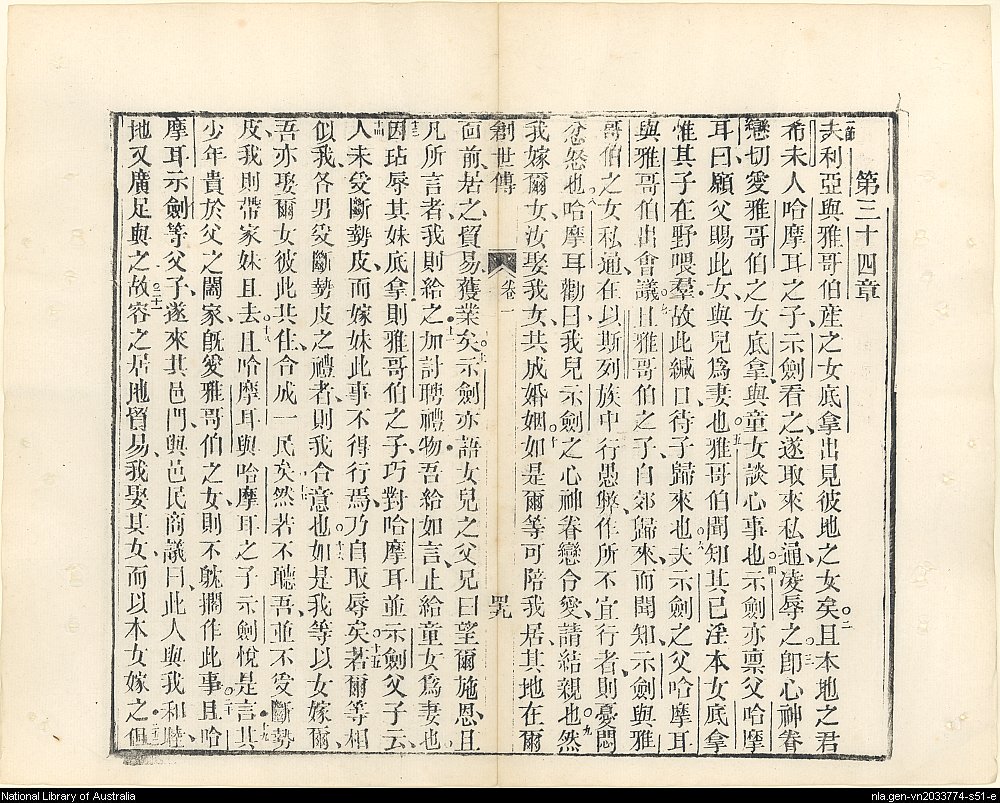 第三十四章
一節夫利亞與雅哥伯産之女底拿出見彼地之女矣○二且本地之君
希未人哈摩耳之子示劍看之遂取來私通凌辱之○三即心神眷
戀切愛雅哥伯之女底拿與童女談心事也○四示劍亦禀父哈摩
耳曰願父賜此女與兒為妻也○五雅哥伯聞知其已淫本女底拿
惟其子在野喂羣故此緘口待子歸來也○六夫示劍之父哈摩耳
與雅哥伯出會議○七且雅哥伯之子自郊歸來而聞知示劍與雅
哥伯之女私通在以斯列族中行愚弊作所不宜行者則憂悶
忿怒也○八哈摩耳勸曰我兒示劍之心神眷戀令愛請結親也○九然
我嫁爾女汝娶我女共成婚姻○十如是爾等可陪我居其地在爾
創世傳 卷一 四九
面前居之貿易獲業矣○十一示劍亦語女兒之父兄曰望爾施恩且
凡所言者我則給之○十二加討聘禮物吾給如言止給童女為妻也
○十三因玷辱其妹底拿則雅哥伯之子巧對哈摩耳並示劍父子云
○十四人未受斷勢皮而嫁妹此事不得行焉乃自取辱矣○十五若爾等相
似我各男受斷勢皮之禮者則我合意也○十六如是我等以女嫁爾
吾亦娶爾女彼此共住合成一民矣○十七然若不聽吾並不受斷勢
皮我則帶家妹且去○十八且哈摩耳與哈摩耳之子示劍悅是言○十九其
少年貴於父之闔家旣愛雅哥伯之女則不躭擱作此事○二十且哈
摩耳示劍等父子遂來其邑門與邑民商議曰○二十一此人與我和睦
地又廣足與之故容之居此地貿易我娶其女而以本女嫁之○二十二但
National Library of Australia
nla.gen-vn2033774-s51-e